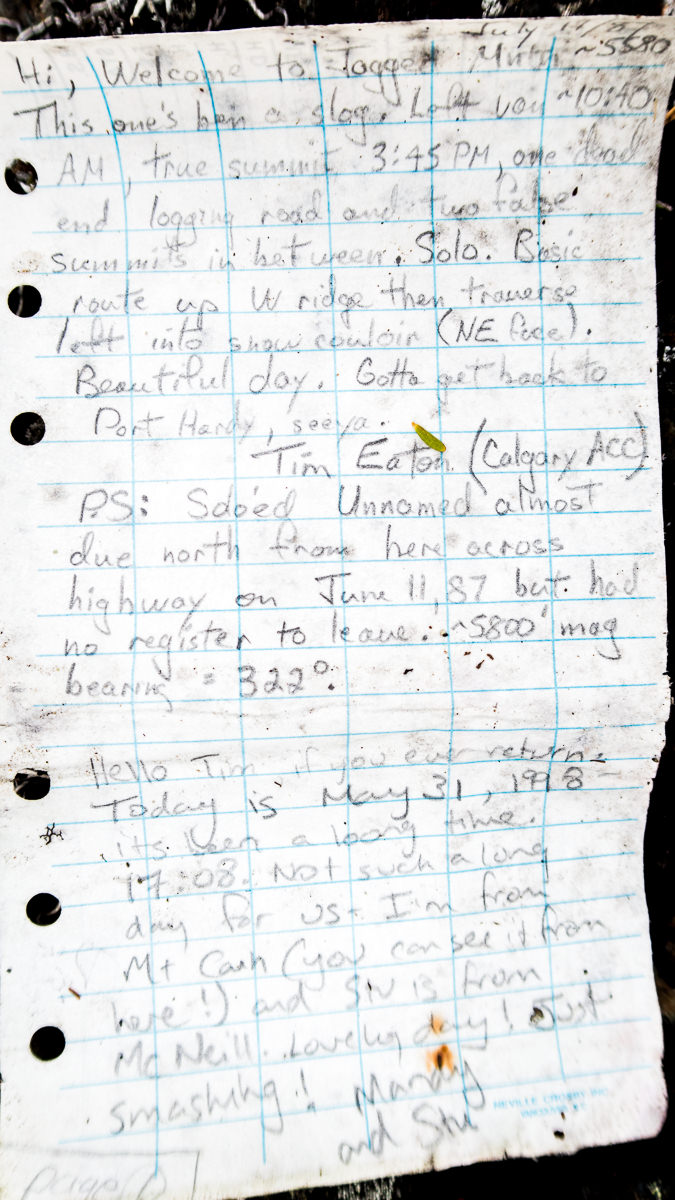 July
Hi, Welcome to Jogger Mntn ~5580
This one's ben a slog. Left van ~10:40
AM, true summit 3:45 PM, one dead
end logging road and two false
summits in between. Solo. Basic
route up W ridge then traverse
left into snow couloir (NE face).
Beautiful day. Gotta get back to
Port Hardy, seeya.
Tim Eaton (Calgary ACC)
P.S: Solo'ed Unnamed almost
due north from here across
highway on June 11, 87 but had
no register to leave. ~5800' mag
bearing = 322°.
Hello Tim, if you ever return -
Today is May 31, 1998 -
its been a loong time.
17:08. Not such a long
day for us - I'm from
Mt Cain (you can see it from
here!) and Stu is from
McNeill. Lovely day! Just
smashing! Mandy
and Stu
NEVILLE CROSBY INC.
page